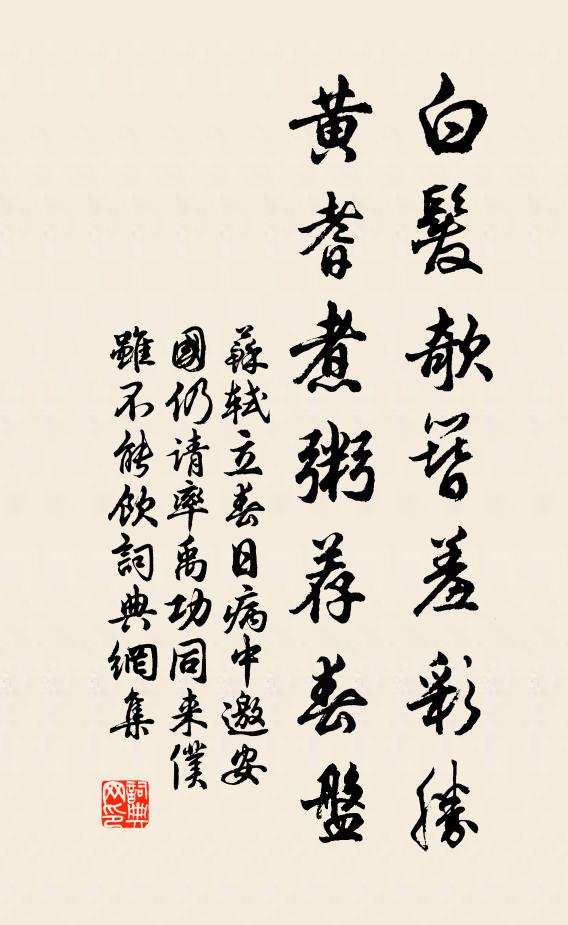 白髮欹簪羞彩勝
黄耆煮粥荐春盤
蘇軾立春日病中邀安
國仍请率禹功同来僕
雖不能飲詞典網集
詞典
网印